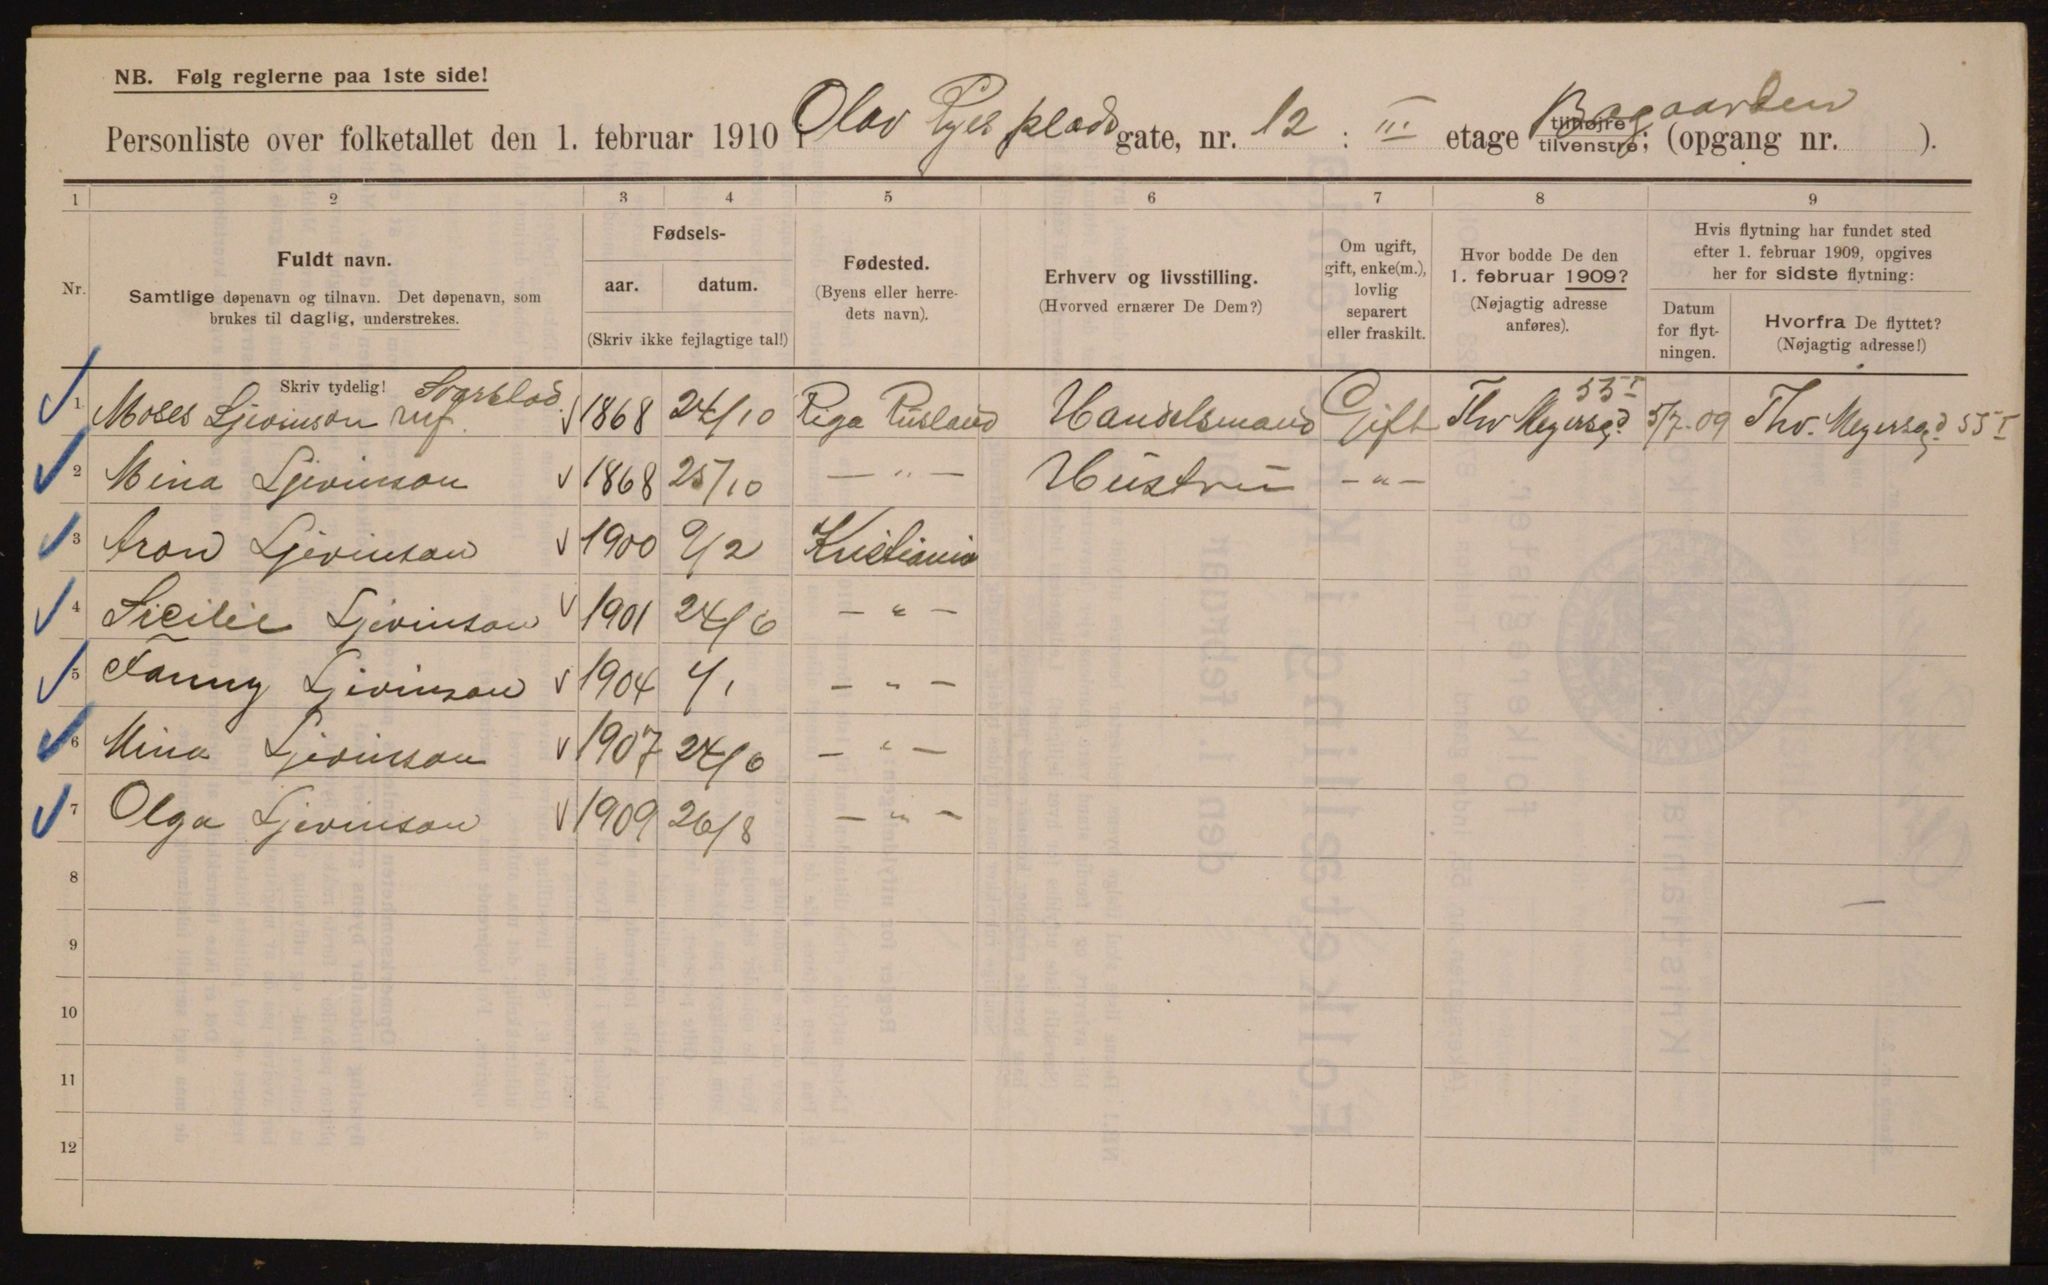 NB. Følg reglerne paa 1ste side!
Personliste over folketallet den 1. februar 1910 i Olav Ryes plads gate, nr. 12 : III etage tilhøjre tilvenstre; Bagaarden (opgang nr. ).
1 2 3 4 5 6 7 8 9
Nr.
Fuldt navn.
Samtlige døpenavn og tilnavn. Det døpenavn, som
brukes til daglig, understrekes.
Fødsels-
aar. datum.
(Skriv ikke fejlagtige tal!)
Fødested.
(Byens eller herre-
dets navn).
Erhverv og livsstilling.
(Hvorved ernærer De Dem?)
Om ugift,
gift, enke(m.),
lovlig
separert
eller fraskilt.
Hvor bodde De den
1. februar 1909?
(Nøjagtig adresse
anføres).
Hvis flytning har fundet sted
efter 1. februar 1909, opgives
her for sidste flytning:
Datum
for flyt-
ningen.
Hvorfra De flyttet?
(Nøjagtig adresse!)
Skriv tydelig!
1 Moses Ljevinson 1868 24/10 Riga Rusland Handelsmand Gift Thv Meyersgd. 55 I 5/7-09 Thv. Meyersgd 55 I
2 Mina Ljevinson 1868 25/10 — " — Hustru — " —
3 Aron Ljevinson 1900 9/2 Kristiania
4 Sicilie Ljevinson 1901 24/6 — " —
5 Fanny Ljevinson 1904 4/1 — " —
6 Mina Ljevinson 1907 24/6 — " —
7 Olga Ljevinson 1909 26/8 — " —
8
9
10
11
12